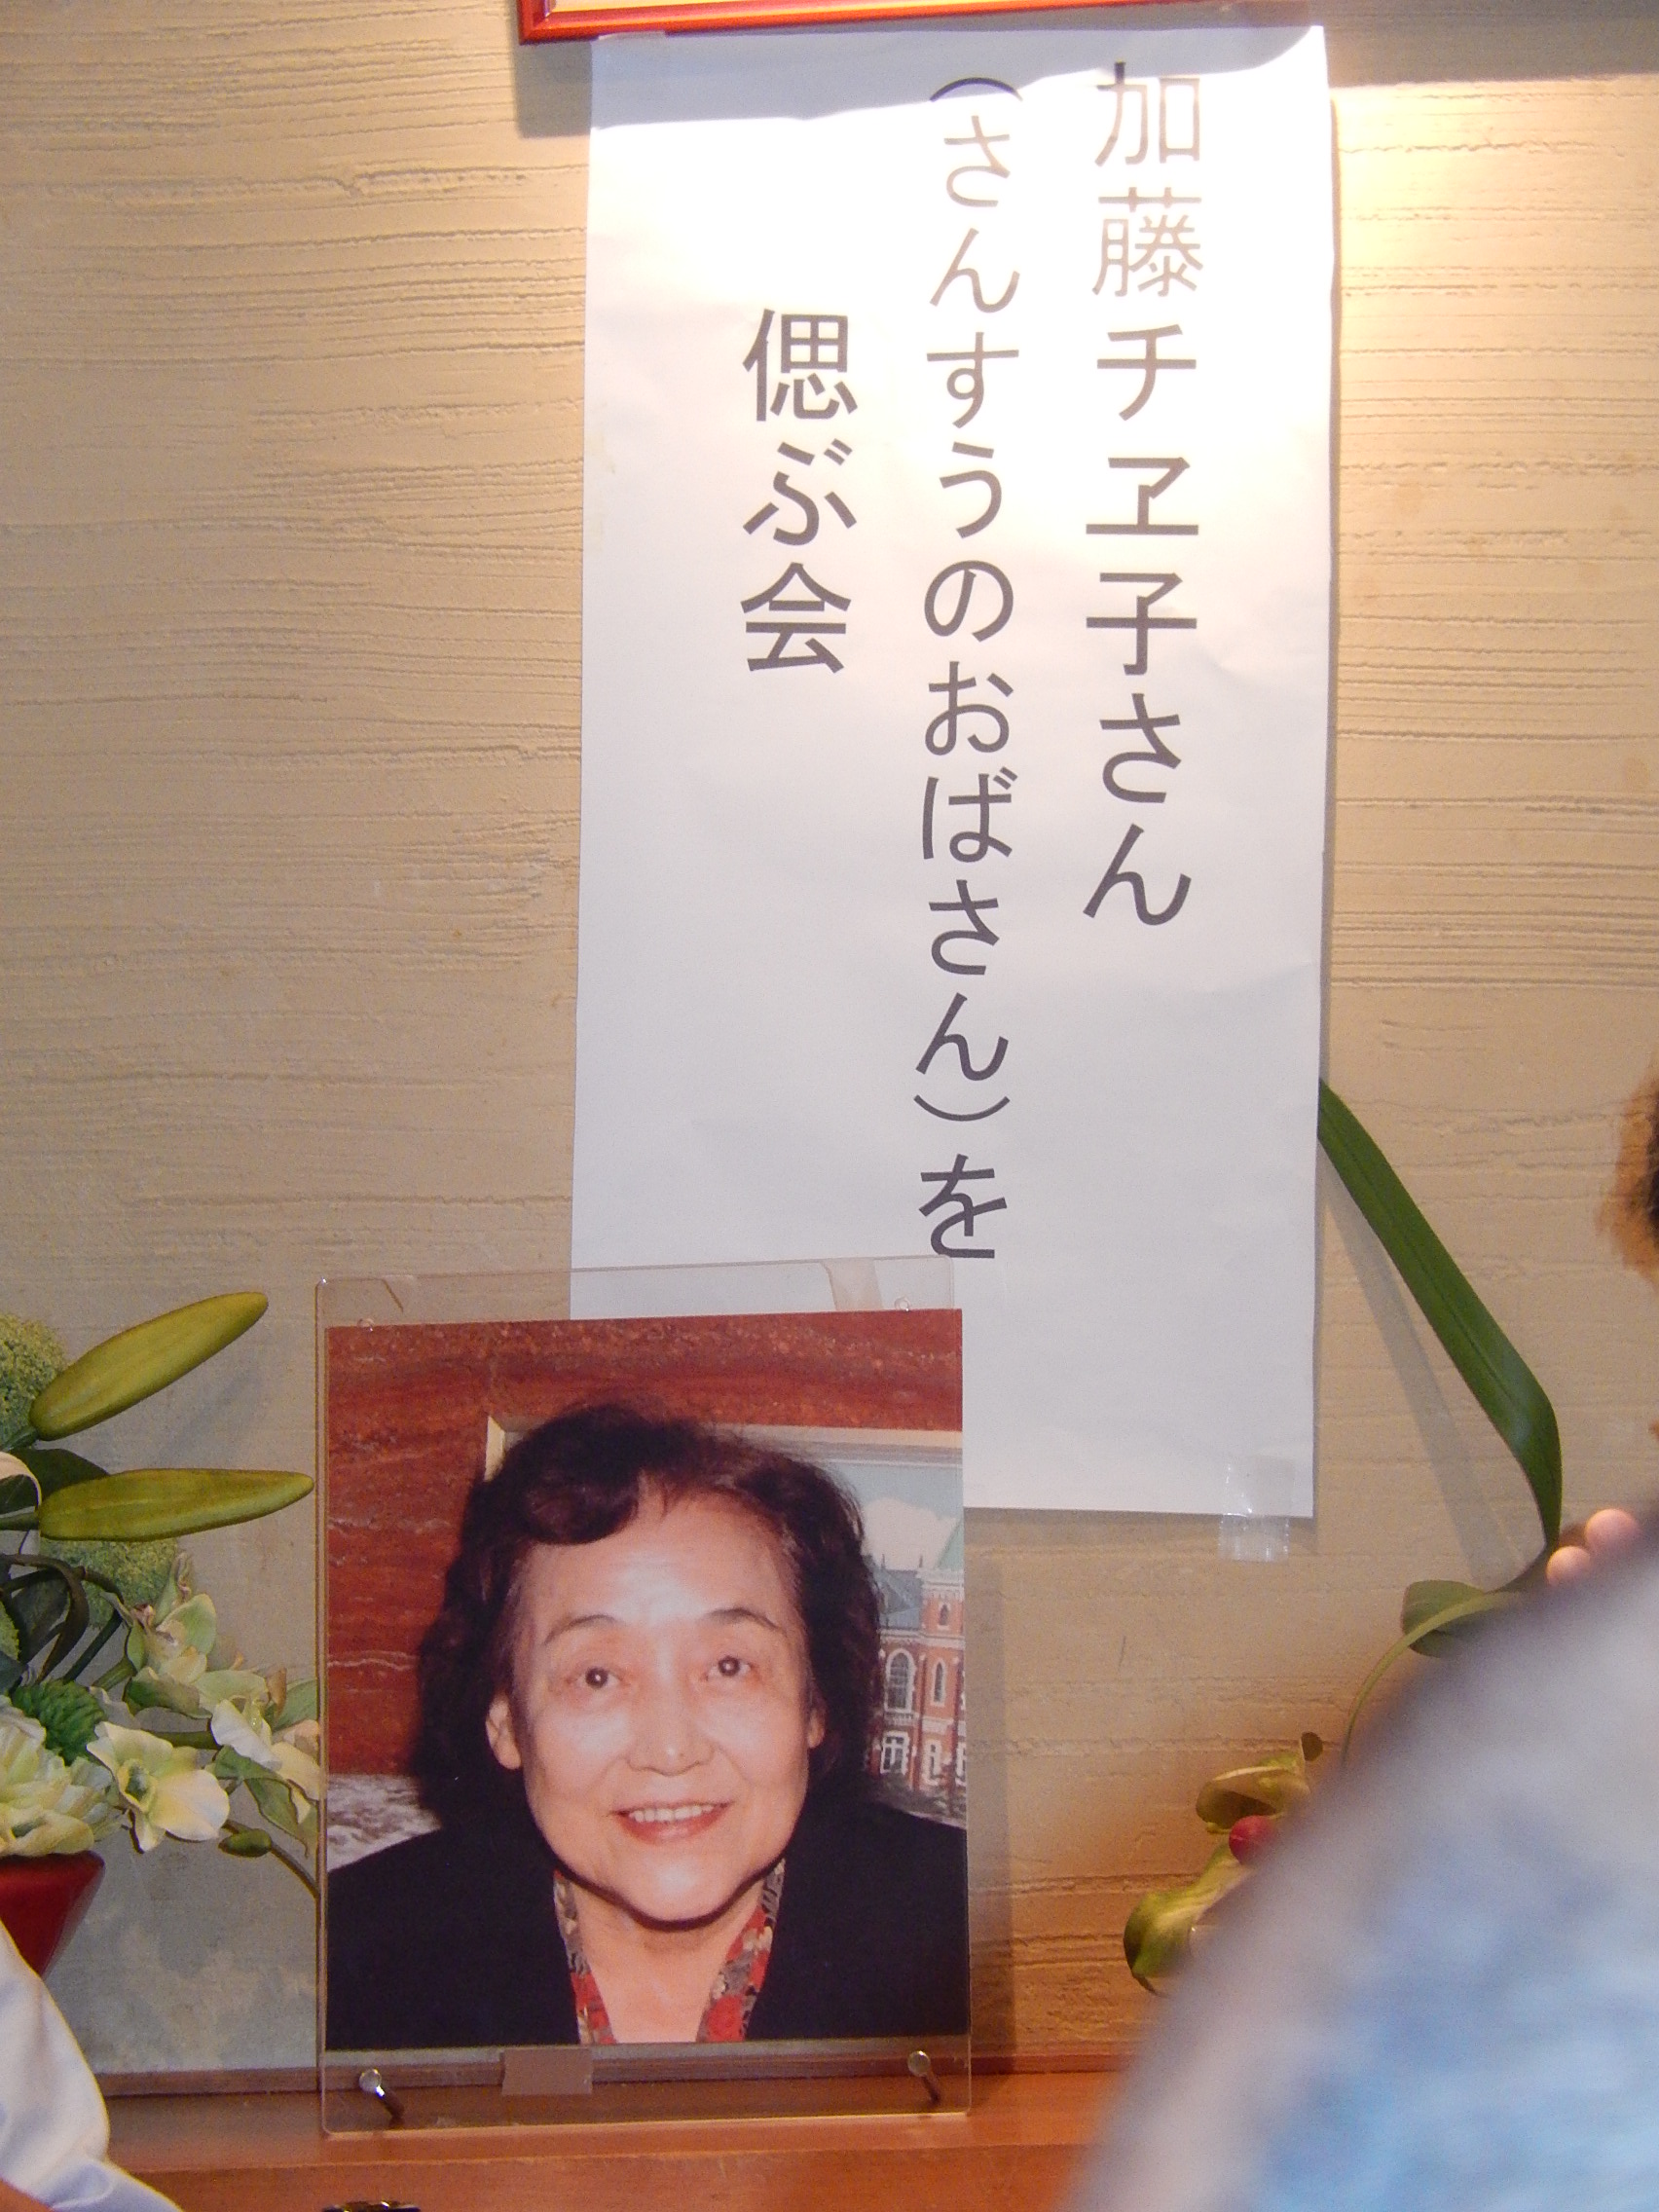 加藤チヱ子さん
（さんすうのおばさん）を
偲ぶ会